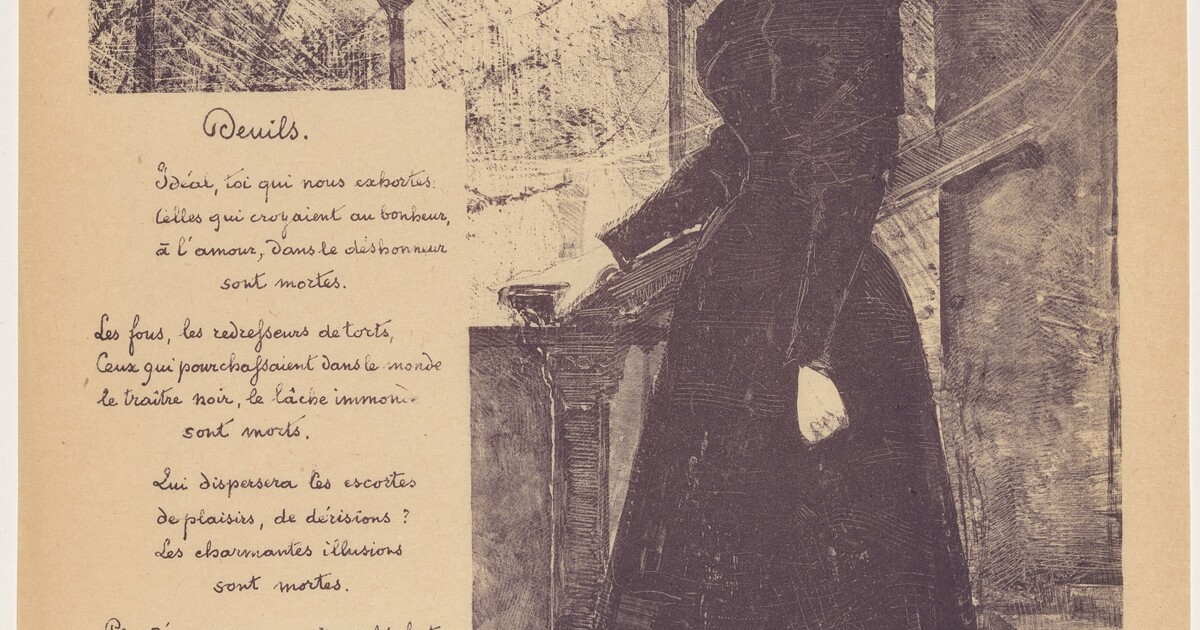 Deuils.
Idéal, toi qui nous exhortes:
Celles qui croyaient au bonheur,
à l'amour, dans le déshonneur
sont mortes.
Les fous, les redresseurs de torts,
Ceux qui pourchassaient dans le monde
le traître noir, le lâche immonde
sont morts.
Qui dispersera les escortes
de plaisirs, de dérisions ?
Les charmantes illusions
sont mortes.